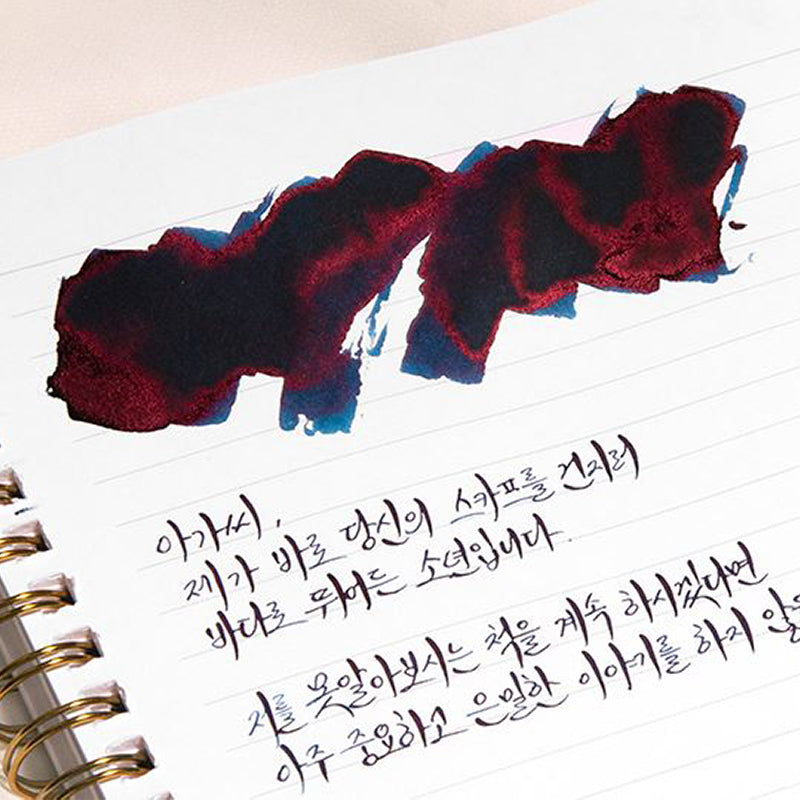 아가씨,
제가 바로 당신의 스카프를 건지러
바다로 뛰어든 소년입니다.
저를 못알아보시는 척을 계속 하시겠다면
아주 중요하고 은밀한 이야기를 하지 않을